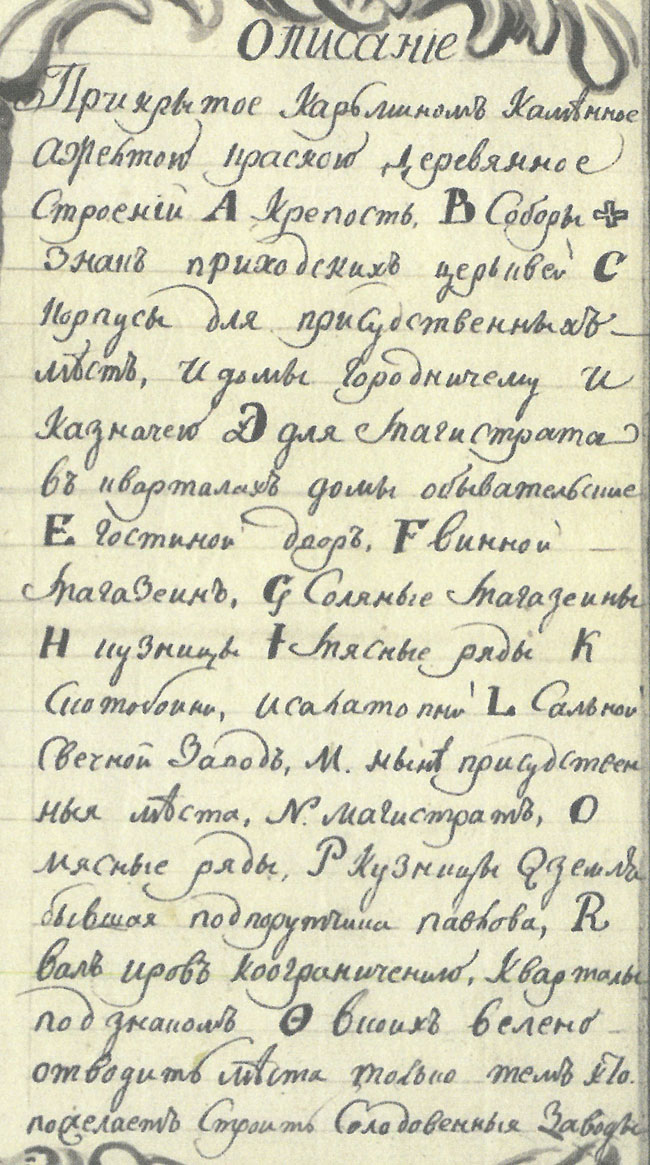 Описанiе
Прикрытое Карьмином Камѣнное
ажелтою краскою деревянное
Строенiй A Крепость, B Соборы ✠
Знакъ приходскихъ церьквей C
Корпусы для присудственныхъ
мѣстъ, и домы городничему и
Казначею D для Магистрата
въ кварталахъ домы обывательские
E гостиной дворъ, F винной
Магазеинъ, G Соляные Магазеины
H кузницы I Мясные ряды K
Скотобоини, исалатопни L Сальной
Свечной Заводъ, M. нынѣ присудствен
ныя мѣста, N. магистратъ, O
мясные ряды, P Кузницы Q земля
бывшая подпорутчика павлова, R
валъ ировъ коограничению, Кварталы
под знакомъ Θ вкоихъ велено
отводить мѣста только темъ кто
пожелаетъ Строить Солодовенныя Заводы